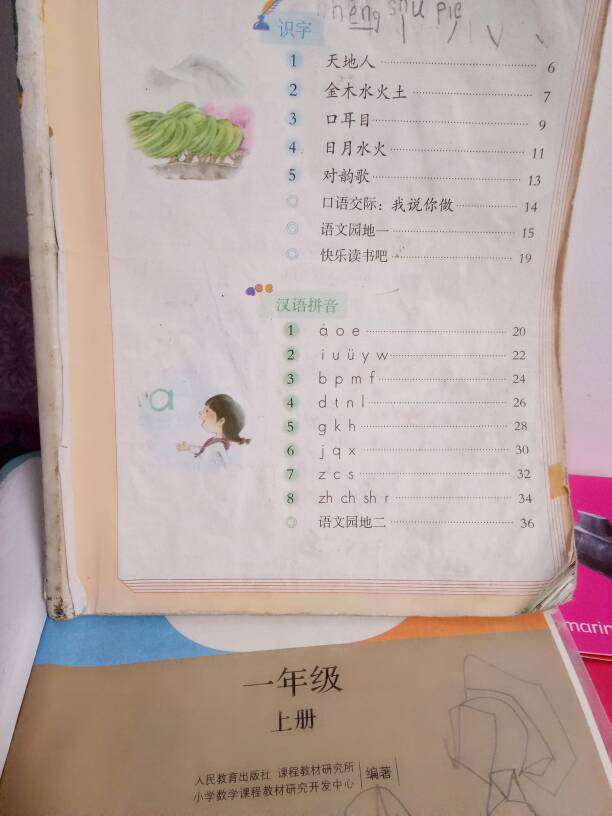 识字
1 天地人 6
2 金木水火土 7
3 口耳目 9
4 日月水火 11
5 对韵歌 13
口语交际：我说你做 14
语文园地一 15
快乐读书吧 19
汉语拼音
1 ɑ o e 20
2 i u ü y w 22
3 b p m f 24
4 d t n l 26
5 g k h 28
6 j q x 30
7 z c s 32
8 zh ch sh r 34
语文园地二 36
ɑ
一年级
上册
人民教育出版社 课程教材研究所
小学数学课程教材研究开发中心
编著